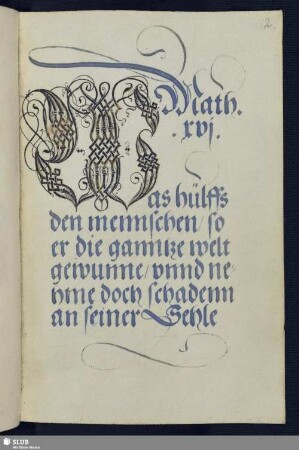 2.
Math.
. xvj .
Was hülffs
den mennschen / so
er die ganntze welt
gewunne / vnnd ne⸗
hme doch schadenn
an seiner Sehle
SLUB
Wir führen Wissen.